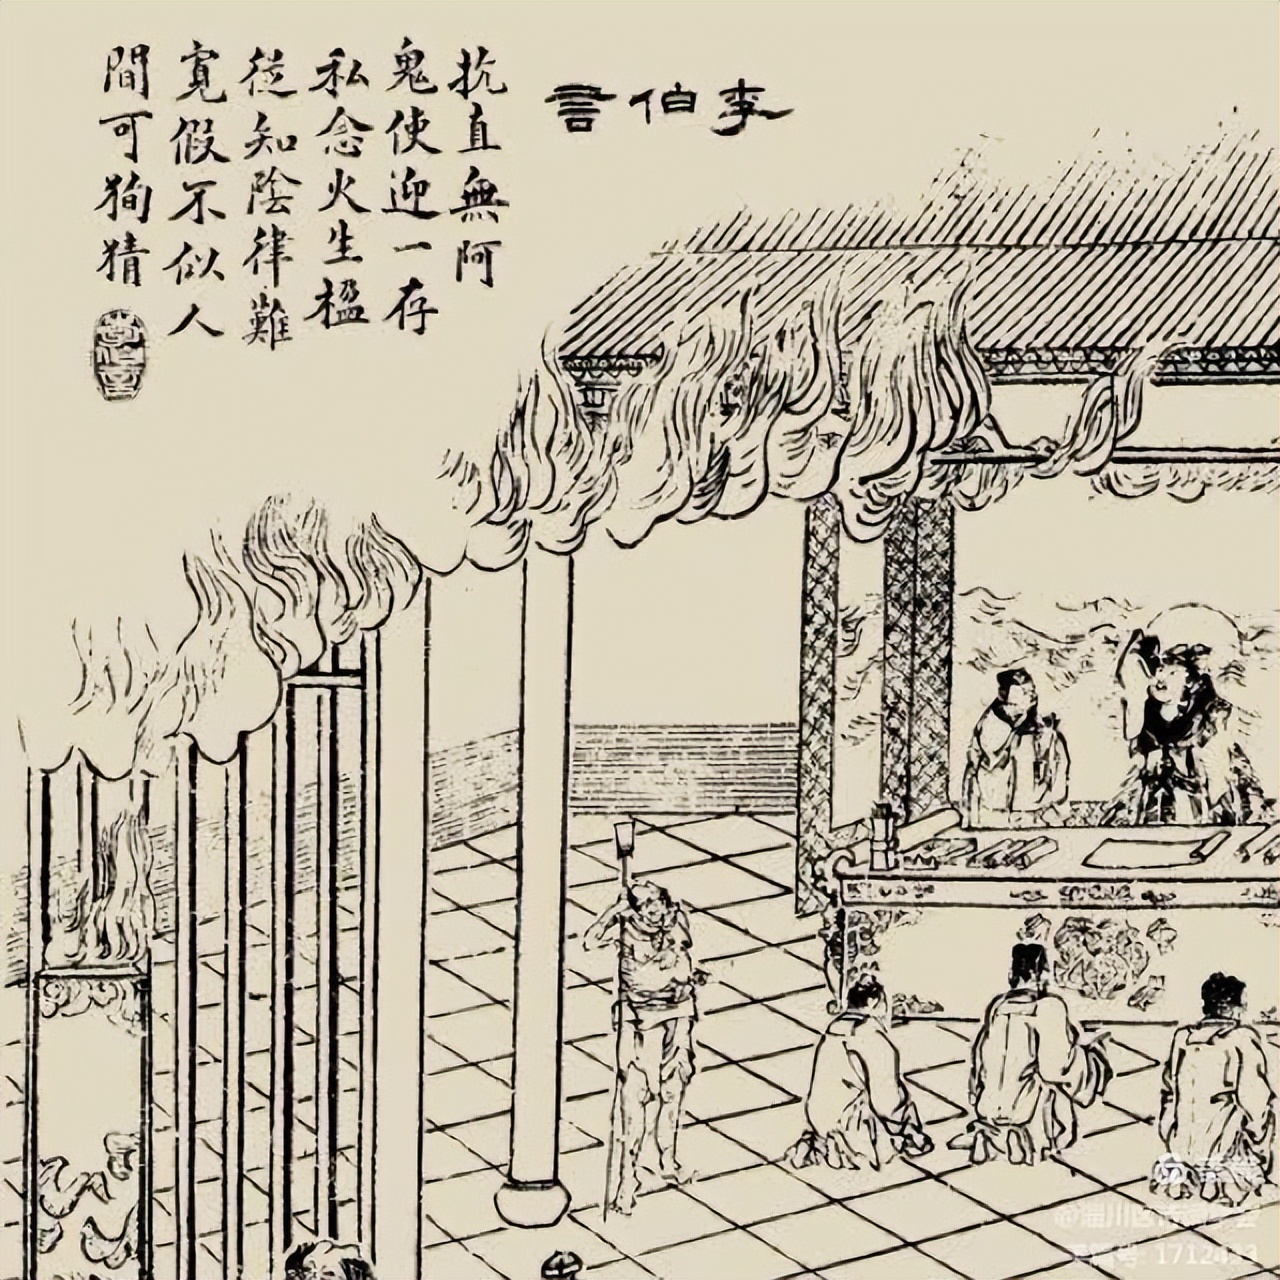 李伯言
抗直無阿
鬼使迎一存
私念火生楹
從知陰律難
寬假不似人
間可狥猜
@淄川区